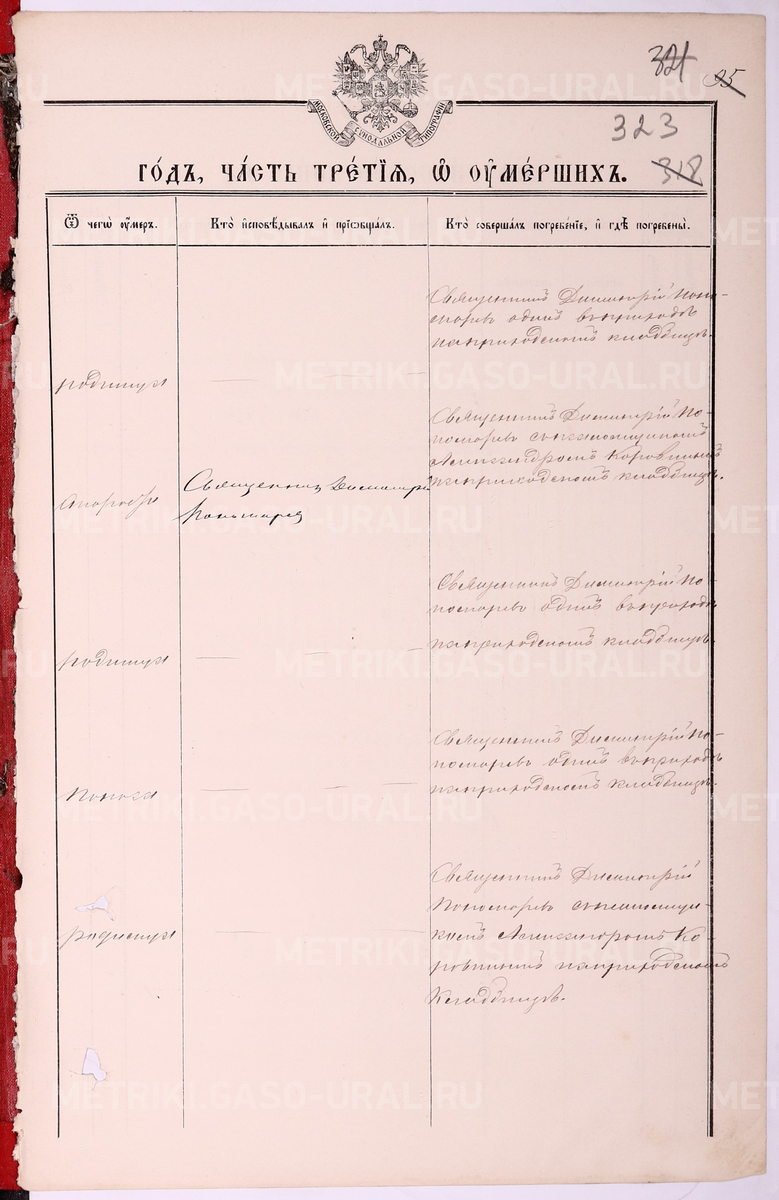 321 95
323
318
МОСКОВСКОЙ СѴНОДАЛЬНОЙ ТИПОГРАФІИ
ГО́ДЪ, ЧА́СТЬ ТРЕ́ТІѦ, Ѡ҆ ОУ҆МЕ́РШИХЪ.
Ѿ чегѡ̀ оу҆́меръ.
Кто̀ и҆сповѣ́дывалъ и҆ прїѡбща́лъ.
Кто̀ соверша́лъ погребе́нїе, и҆ гдѣ̀ погребены̀.
Священникъ Димитрій Поно-
маревъ одинъ въ приходѣ
на приходскомъ кладбищѣ.
родимца
Священникъ Димитрій По-
номаревъ съ псаломщикомъ
Александромъ Коровинымъ
на приходскомъ кладбищѣ.
Священникъ Димитрій
Пономаревъ
Священникъ Димитрій По-
номаревъ одинъ въ приходѣ
на приходскомъ кладбищѣ.
родимца
Священникъ Димитрій По-
номаревъ одинъ въ приходѣ
на приходскомъ кладбищѣ.
поноса
Священникъ Димитрій
Пономаревъ съ псаломщи-
комъ Александромъ Ко-
ровинымъ на приходскомъ
кладбищѣ.
родимца
METRIKI.GASO-URAL.RU